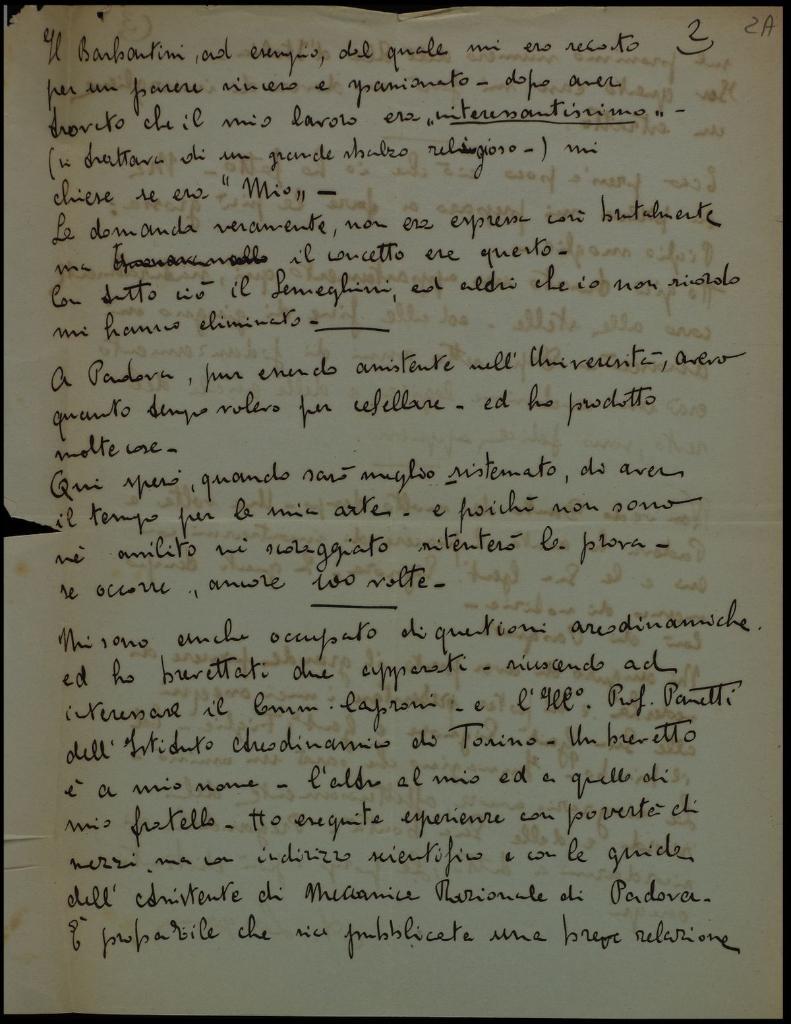 2
2A
Il Barbantini, ad esempio, dal quale mi ero recato
per un parere sincero e spassionato – dopo aver
trovato che il mio lavoro era „interessantissimo" –
(si trattava di un grande sbalzo religioso –) mi
chiese se era "Mio„ –
La domanda veramente, non era espressa così brutalmente
ma il concetto era questo –
Con tutto ciò il Semeghini, ed altri che io non ricordo
mi hanno eliminato –
A Padova, pur essendo assistente nell' Università, avevo
quanto tempo volevo per cesellare – ed ho prodotto
molte cose –
Qui spero, quando sarò meglio sistemato, di aver
il tempo per la mia arte – e poichè non sono
nè avilito nè scoraggiato ritenterò la prova –
se occorre, ancora 100 volte –
Mi sono anche occupato di questioni areodinamiche.
ed ho brevettati due apparati – riuscendo ad
interessare il Comm. Caproni – e l' Ill°. Prof. Panetti
dell' Istituto Areodinamico di Torino – Un brevetto
è a mio nome – l'altro al mio ed a quello di
mio fratello – Ho eseguite esperienze con povertà di
mezzi, ma con indirizzo scientifico e con la guida
dell' Assistente di Meccanica Razionale di Padova –
È probabile che sia pubblicata una breve relazione